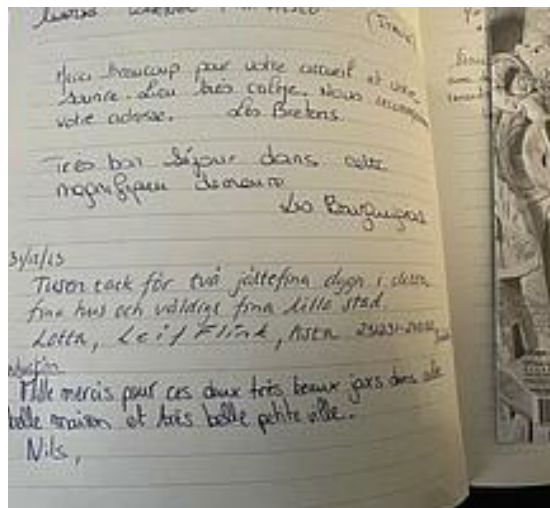 Merci beaucoup pour votre accueil et votre
sourire. Lieu très
votre adresse. Les Bretons
Très bon Séjour dans cette
magnifique demeure
Les Bourguignons
31/12/23
Tusen tack för två jättefina dygn i detta
fina hus och väldigt fina lilla stad.
Lotta, Leif Flink,
Mille mercis pour ces deux très beaux jours dans cette
belle maison et très belle petite ville.
Nils,